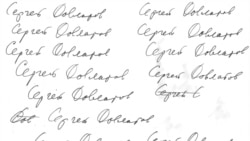 Сергей Довлатов Сергей Довлатов
Сергей Довлатов Сергей Довлатов
Сергей Довлатов Сергей Довлатов
Сергей Довлатов Сергей Довлатов
Сергей Довлатов Сергей
Сергей Довлатов
Довлатов Довлатов